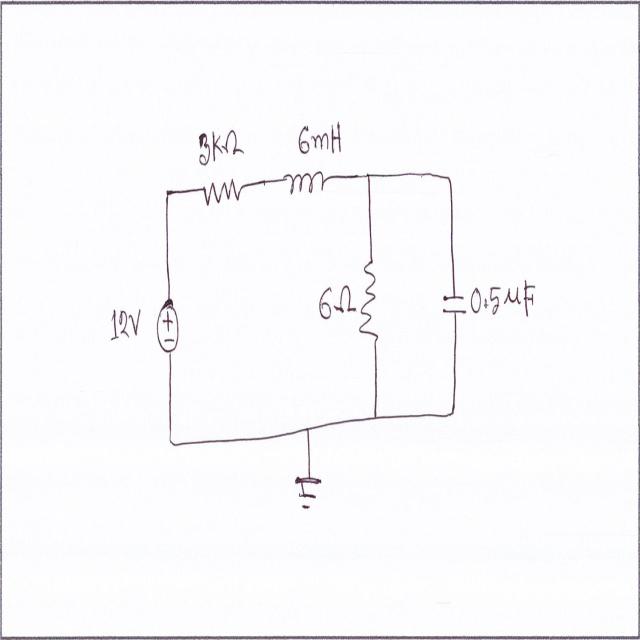 3kΩ 6mH
12V
+
-
6Ω
0.5μF